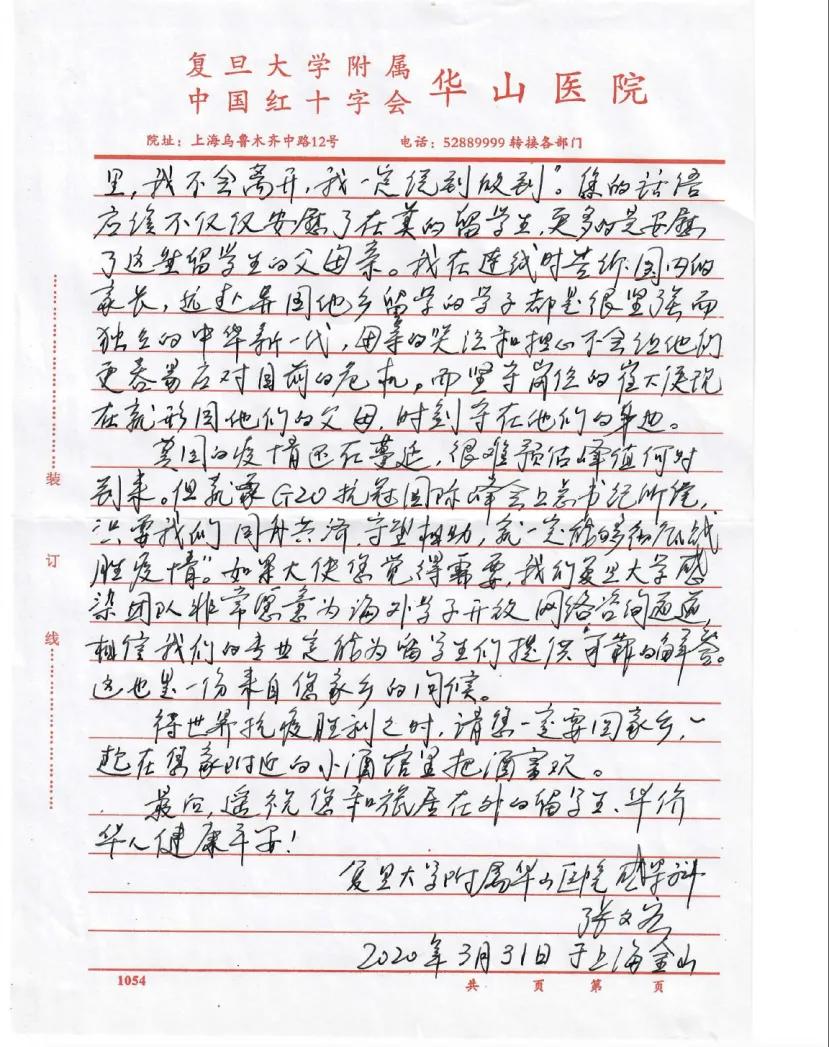 复旦大学附属
中国红十字会 华山医院
院址：上海乌鲁木齐中路12号 电话：52889999 转接各部门
里，我不会离开，我一定说到做到”。您的话语
应该不仅仅安慰了在英的留学生，更多的是安慰
了这些留学生的父母亲。我在连线时告诉国内的
家长，远赴异国他乡留学的学子都是很坚强而
独立的中华新一代，母亲的哭泣和担心不会让他们
更容易应对目前的危机。而坚守岗位的崔大使现
在就形同他们的父母，时刻守在他们的身边。
英国的疫情还在蔓延，很难预估峰值何时
到来。但就像G20抗冠国际峰会上总书记所说，
只要我们同舟共济，守望相助，就一定能够彻底战
胜疫情”。如果大使您觉得需要，我们复旦大学感
染团队非常愿意为海外学子开放网络咨询通道，
相信我们的专业定能为留学生们提供可靠的解答。
这也是一份来自您家乡的问候。
待世界抗疫胜利之时，请您一定要回家乡，一
起在您家附近的小酒馆里把酒言欢。
最后，遥祝您和旅居在外的留学生、华侨
华人健康平安！
复旦大学附属华山医院感染科
张文宏
2020年3月31日于上海金山
装
订
线
1054 共 页 第 页